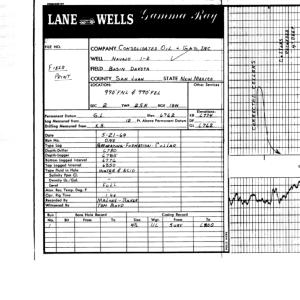 LANE WELLS Gamma Ray
FILE NO.
COMPANY CONSOLIDATED OIL & GAS, INC
WELL NAVAJO 1-2
FIELD BASIN DAKOTA
COUNTY SAN JUAN STATE NEW MEXICO
FIELD
PRINT
LOCATION:
990' FNL & 990' FEL
Other Services
SEC 2 TWP 25N RGE 10W
Permanent Datum G.L. Elev. 6762
Log Measured from 12 Ft. Above Permanent Datum
Drilling Measured from K.B.
Elevations:
KB 6774
DF
GL 6762
Date 5-21-64
Run No. ONE
Type Log PERFORATING FORMATION COLLAR
Depth-Driller 6780
Depth-Logger 6785
Bottom Logged Interval 6776
Top Logged Interval 6350
Type Fluid in Hole WATER & ACID
Salinity Ppm Cl.
Density Lb./Gal.
Level FULL
Max. Rec. Temp. Deg. F
Opr. Rig Time
Recorded By
Witnessed By TOM BOYD
Run Bore Hole Record Casing Record
No. Bit From To Size Wgt. From To
1 4½ SURF
COLLARS
CORRECTED COLLARS